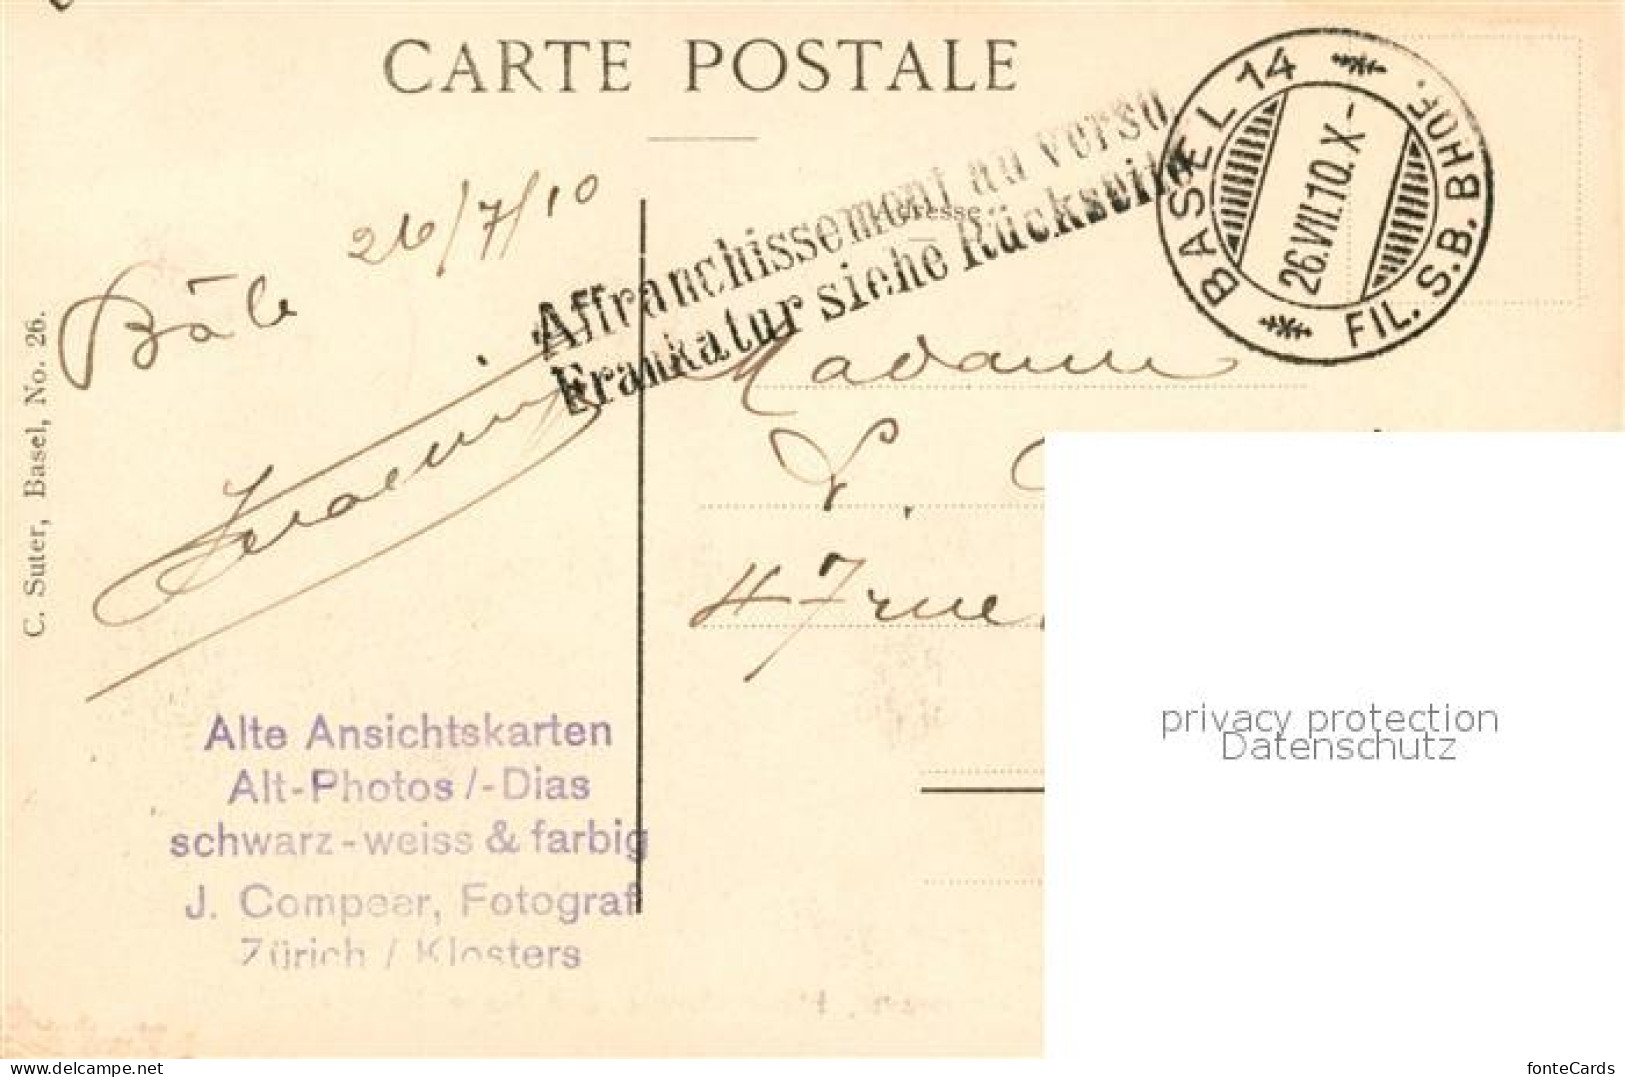 CARTE POSTALE
BASEL 14
FIL. S.B. BHOF.
26.VII.10.X-
Affranchissement au verso
Frankatur siehe Rückseite
Adresse
Bâle 26/7/10
Madame
47 rue
C. Suter, Basel, No. 26.
Alte Ansichtskarten
Alt-Photos /-Dias
schwarz-weiss & farbig
J. Compeer, Fotograf
Zürich / Klosters
privacy protection
Datenschutz
www.delcampe.net
fonteCards